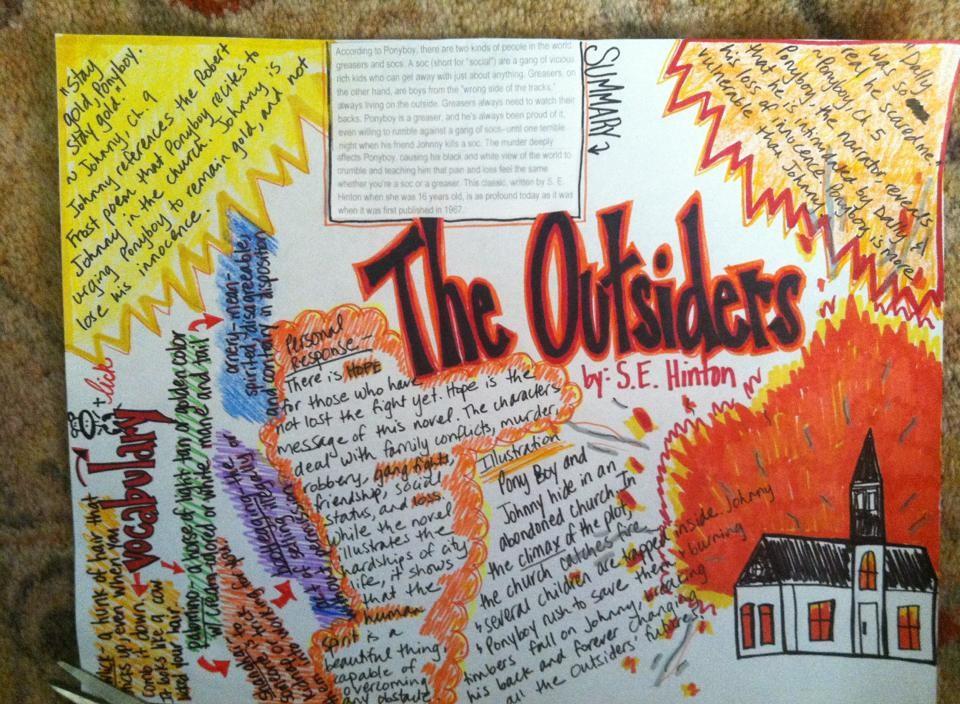 "Stay
gold, Ponyboy.
Stay gold."
~ Johnny, ch. 9
Johnny references the Robert
Frost poem that Ponyboy recites to
Johnny in the church. Johnny is
urging Ponyboy to remain gold, and not
lose his innocence.
According to Ponyboy, there are two kinds of people in the world
greasers and socs. A soc (short for "social") are a gang of vicious
rich kids who can get away with just about anything. Greasers, on
the other hand, are boys from the "wrong side of the tracks,"
always living on the outside. Greasers always need to watch their
backs. Ponyboy is a greaser, and he's always been proud of it,
even willing to rumble against a gang of socs--until one terrible
night when his friend Johnny kills a soc. The murder deeply
affects Ponyboy, causing his black and white view of the world to
crumble and teaching him that pain and loss feel the same
whether you're a soc or a greaser. This classic, written by S. E.
Hinton when she was 16 years old, is as profound today as it was
when it was first published in 1967.
SUMMARY
"Dally
was so
real he scared me."
~ Ponyboy, ch 5
Ponyboy, the narrator reveals
that he is intimidated by Dally &
his loss of innocence. Ponyboy is more
vulnerable than Johnny.
The Outsiders
by: S.E. Hinton
Personal
Response -
There is HOPE
for those who have
not lost the fight yet. Hope is the
message of this novel. The characters
deal with family conflicts, murder,
robbery, gang fights,
friendship, social
status, and loss.
While the novel
illustrates the
hardships of city
life, it shows
that the
human
spirit is a
beautiful thing,
capable of
overcoming
any obstacle
Illustration
Pony Boy and
Johnny hide in an
abandoned church. In
the climax of the plot,
the church catches fire
& several children are trapped inside. Johnny
& Ponyboy rush to save them & burning
timbers fall on Johnny, breaking
his back and forever changing
all the Outsiders' futures!
vocabulary
lick
a hunk of hair that
up even when you
comb it down
it looks like a cow
licked your hair
palomino- a horse of light tan or golden color
w/ cream colored or white mane and tail
ornery- mean-
spirited, disagreeable,
and contrary in disposition